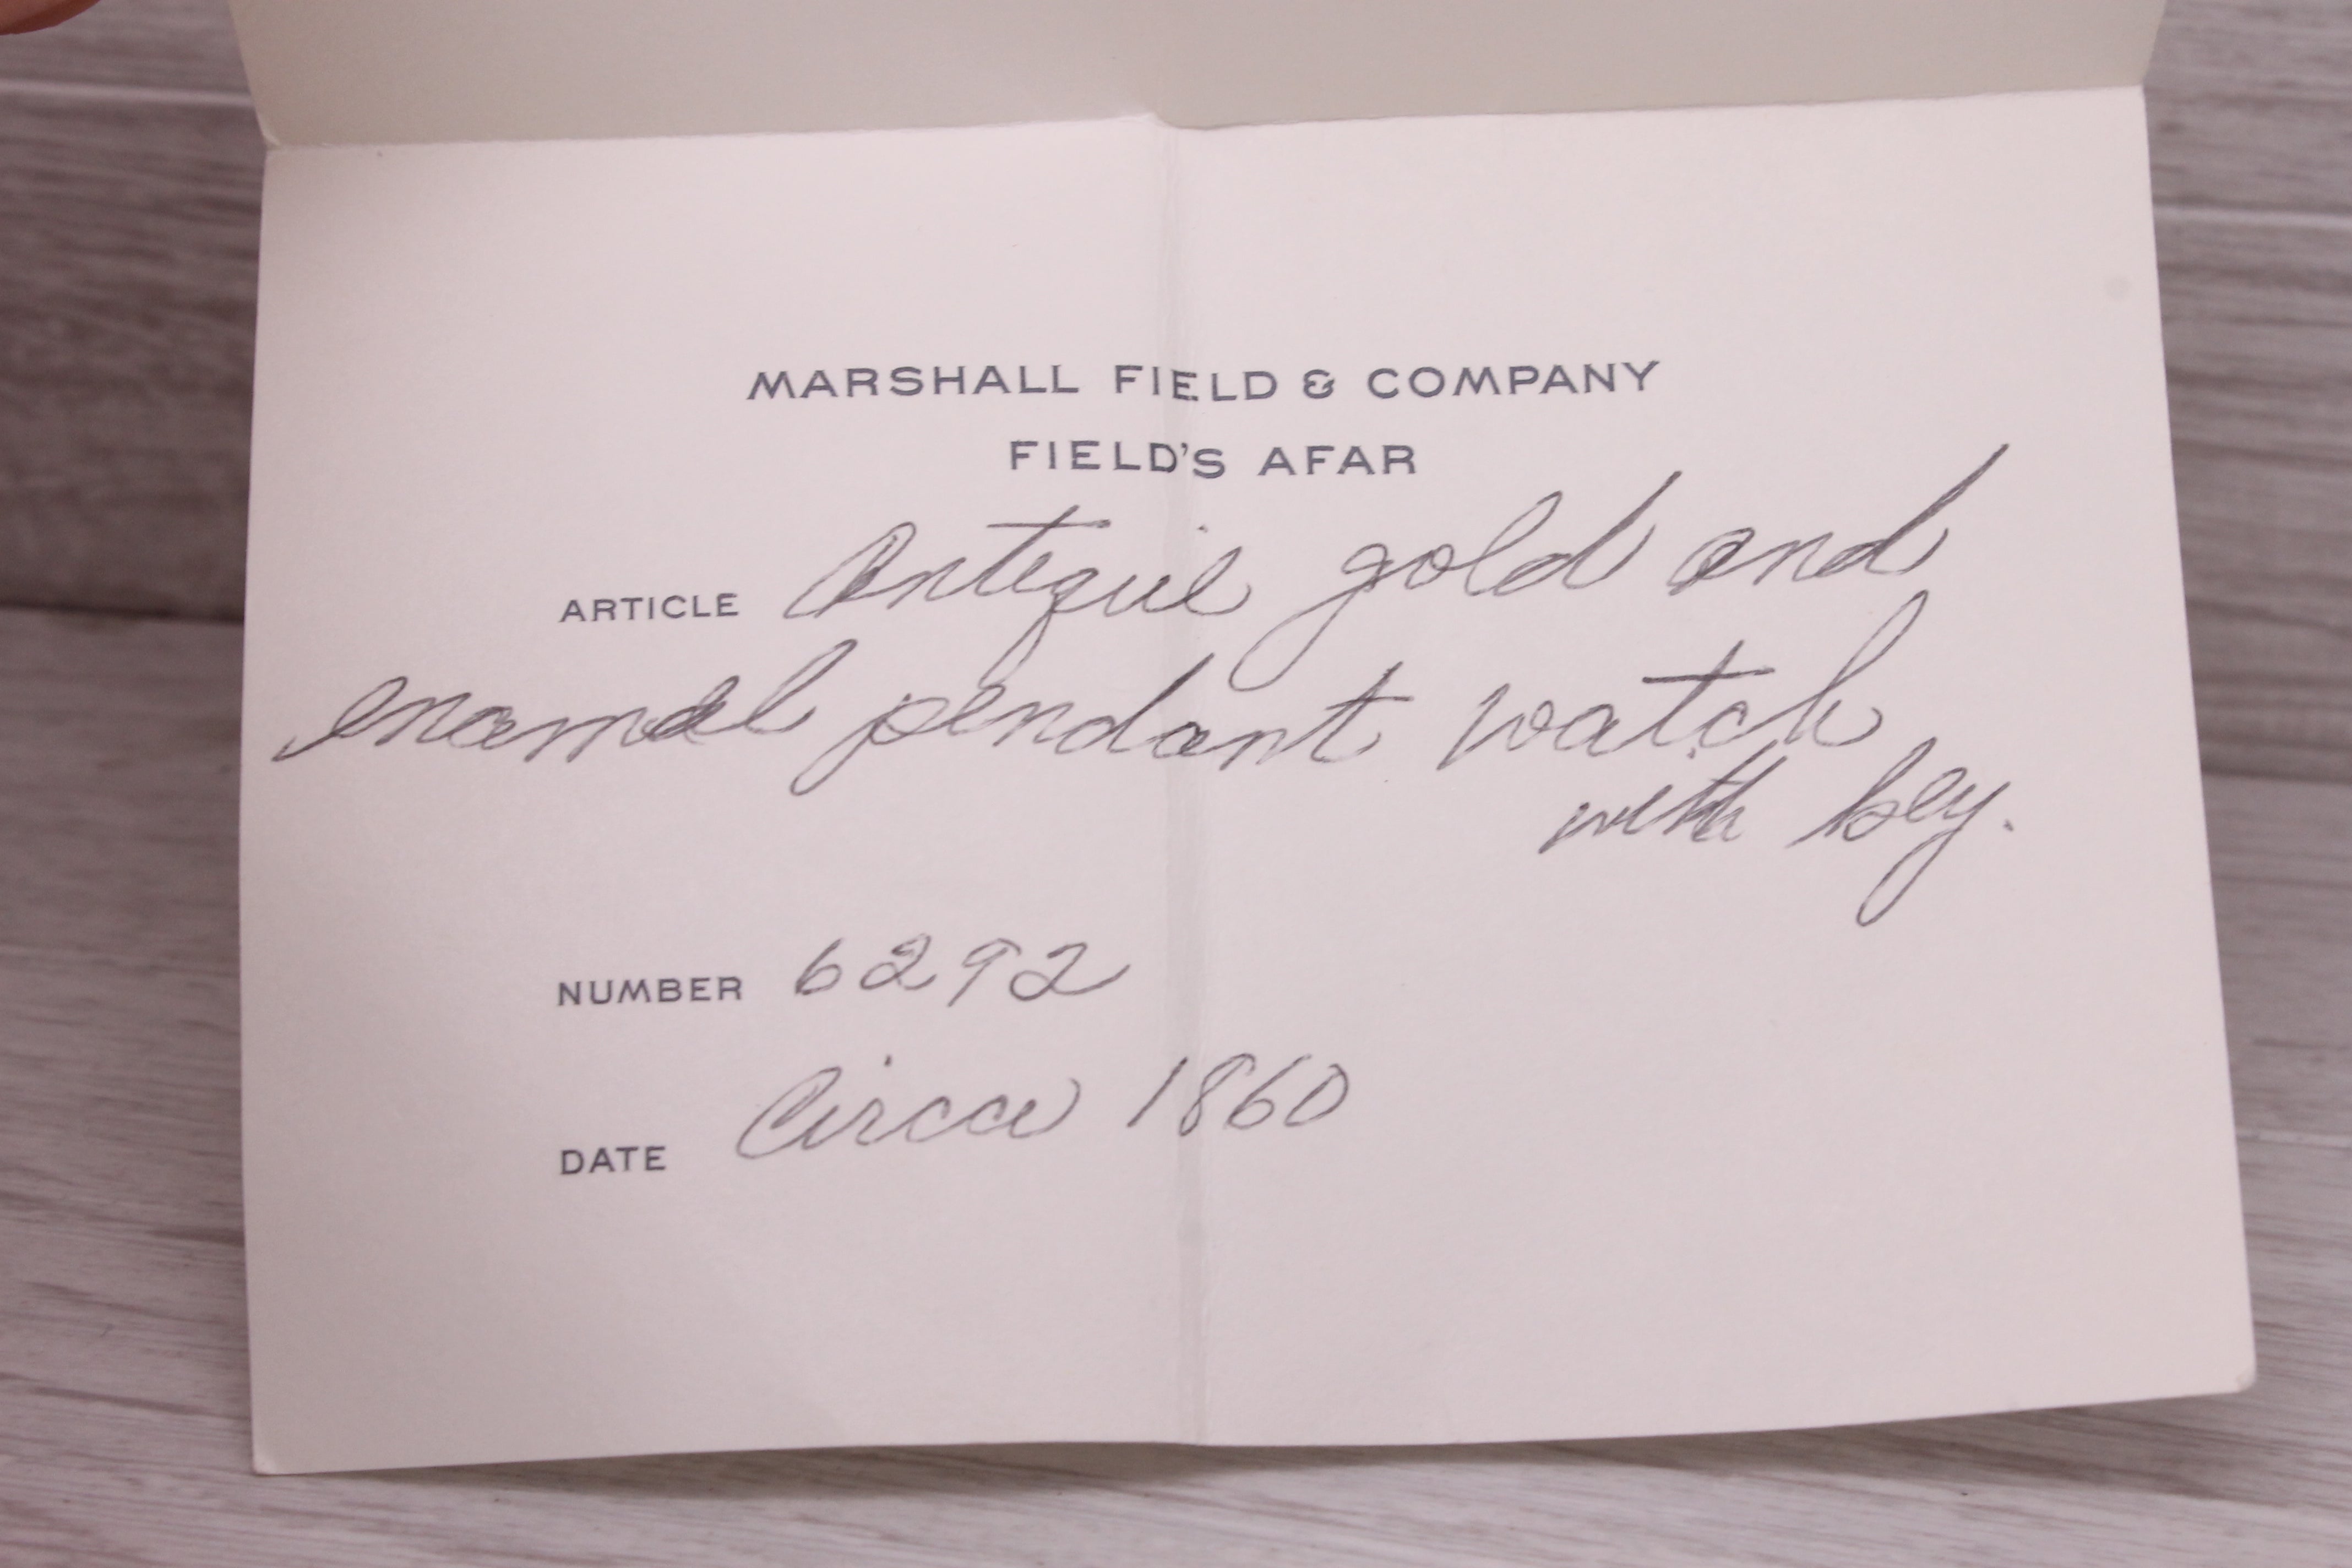 MARSHALL FIELD & COMPANY
FIELD'S AFAR
ARTICLE Antique gold and
enamel pendant watch
with key.
NUMBER 6292
DATE Circa 1860